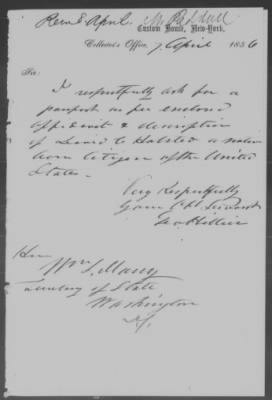 Recd 8 April.
Custom House, New-York,
Collector's Office, 7 April 1856
Sir:
I respectfully ask for a
passport as per enclosed
affidavit & description
of C. Halsted a native
born Citizen of the United
States.
Very Respectfully
Your Obt. Servant
Hon
Wm. L. Marcy
Secretary of State
Washington